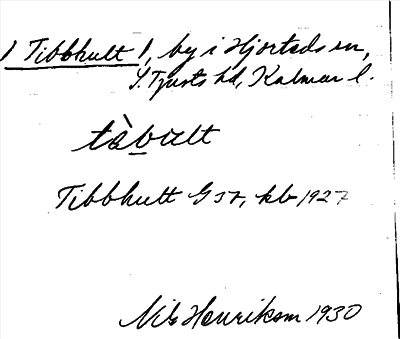 ) Tibbhult ), by i Hjorteds sn,
S. Tjusts hd, Kalmar l.
Tibbhult G sr, kb 1927
Nils Henrikson 1930